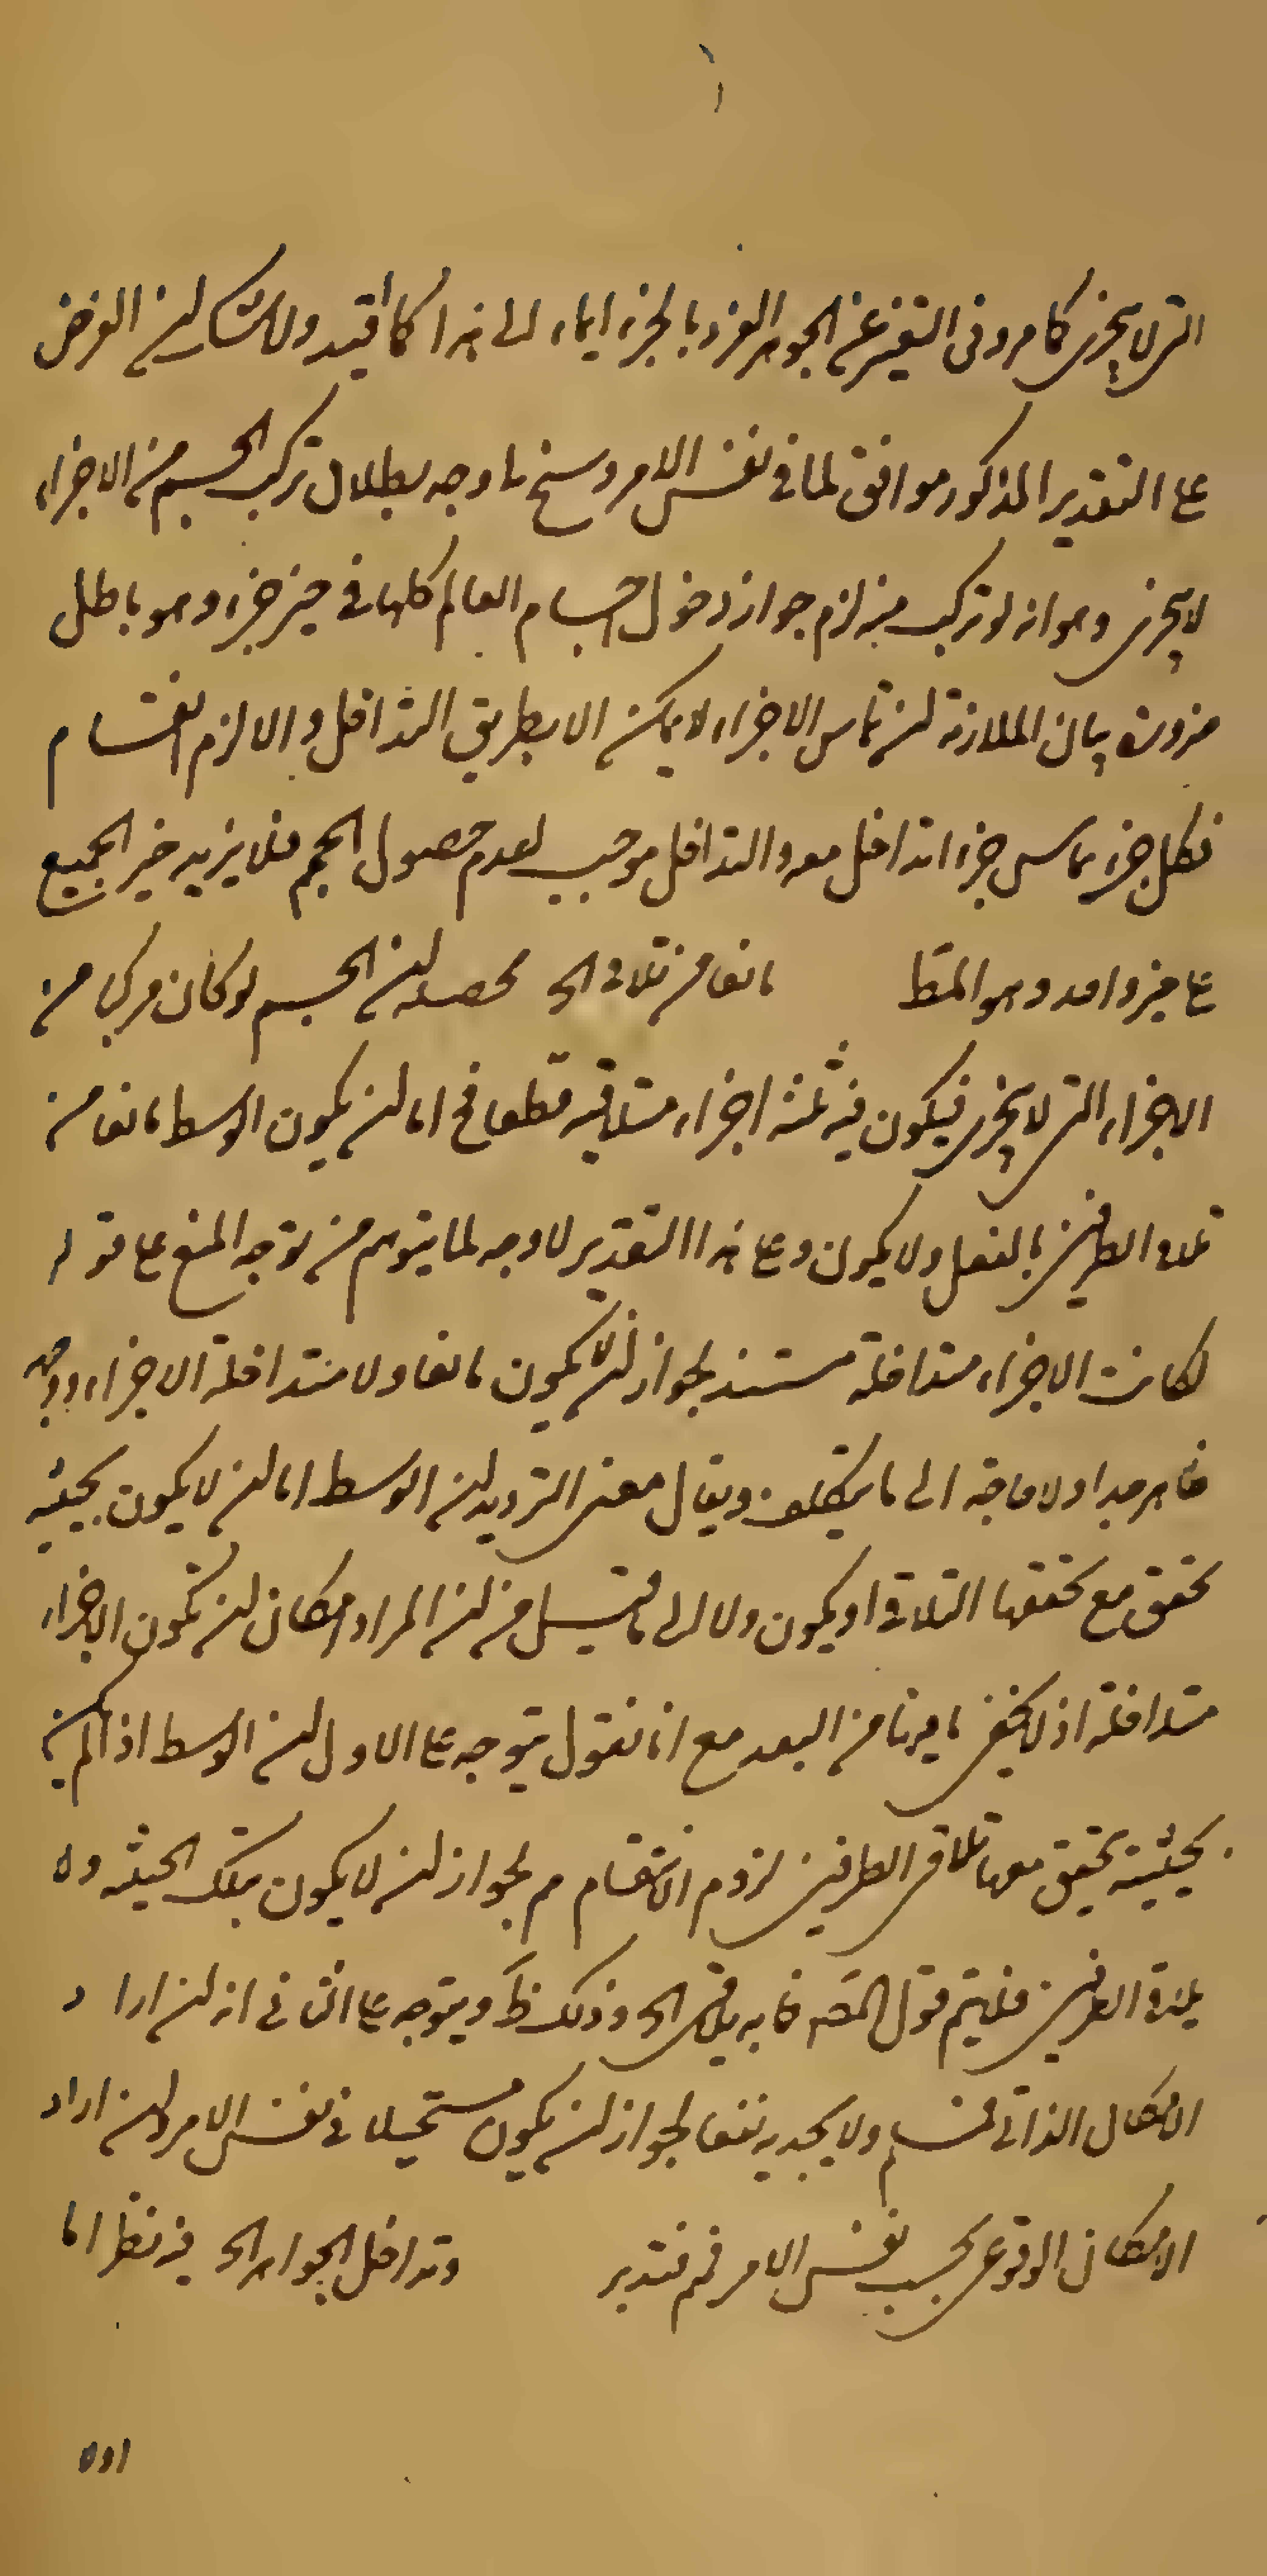 التى لا يتجزى كما مر وفى التعبير عن الجوهر الفرد بالجزء ايماء الى هذا كما قيد ولا شك ان الفرض
على التقدير المذكور موافق لما فى نفس الامر وسنح لنا وجه بطلان تركب الجسم من الاجزاء
لا يتجزى وهو انه لو تركب منه لزم جواز دخول اجسام العالم كلها فى حيز جزء وهو باطل
ضرورة بيان الملازمة ان تماس الاجزاء لا يمكن الا بطريق التداخل والا لزم انقسام
فكل جزء يماس جزءا تداخل معه والتداخل موجب لعدم حصول الحجم فلا يزيد حيز الجميع
على حيز واحد وهو المط مانعا من تلاقى الخ محصله ان الجسم لو كان مركبا من
الاجزاء التى لا يتجزى فيكون فيه ثلثة اجزاء متلاقية قطعا فح اما ان يكون الوسط مانعا من
تلاقى الطرفين بالفعل ولا يكون وعلى هذا التقدير لا وجه لما يتوهم من توجه المنع على قوله
لكانت الاجزاء متداخلة مستند لجواز ان لا يكون مانعا ولا متداخلة الاجزاء
ظاهر جدا ولا حاجة الى ما يتكلف ويقال معنى الترديد ان الوسط اما ان لا يكون بحيثية
تحقق مع تحققها التلاقى او يكون ولا الى ما قيل من ان المراد امكان ان تكون الاجزاء
متداخلة اذ لا يخفى ما فيهما من البعد مع انا نقول يتوجه على الاول ان الوسط اذا لم يكن
بحيثية تحقق معها تلاقى الطرفين لزوم الانقسام م لجواز ان لا يكون بتلك الحيثية ولا
يلاقى الطرفين فلا يتم قول المصـ فما به يلاقى الخ وذلك ظ ويتوجه على الثانى انه ان اراد
الامكان الذاتى فمسلم ولا يجديه نفعا لجواز ان يكون مستحيلا فى نفس الامر وان اراد
الامكان الوقوعى بحسب نفس الامر فم فتدبر وتداخل الجواهر الخ فيه نظر اما